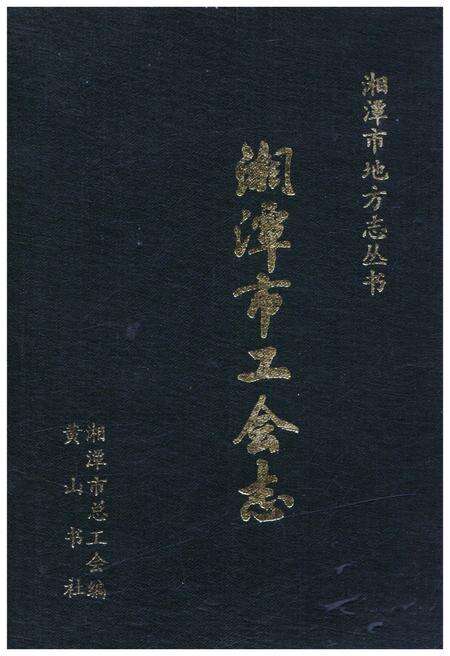 湘潭市地方志丛书
湘潭市工会志
湘潭市总工会编
黄山书社